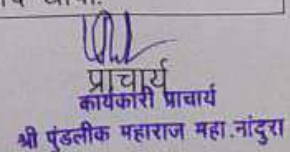 प्राचार्य
कार्यकारी प्राचार्य
श्री पुंडलीक महाराज महा.नांदुरा